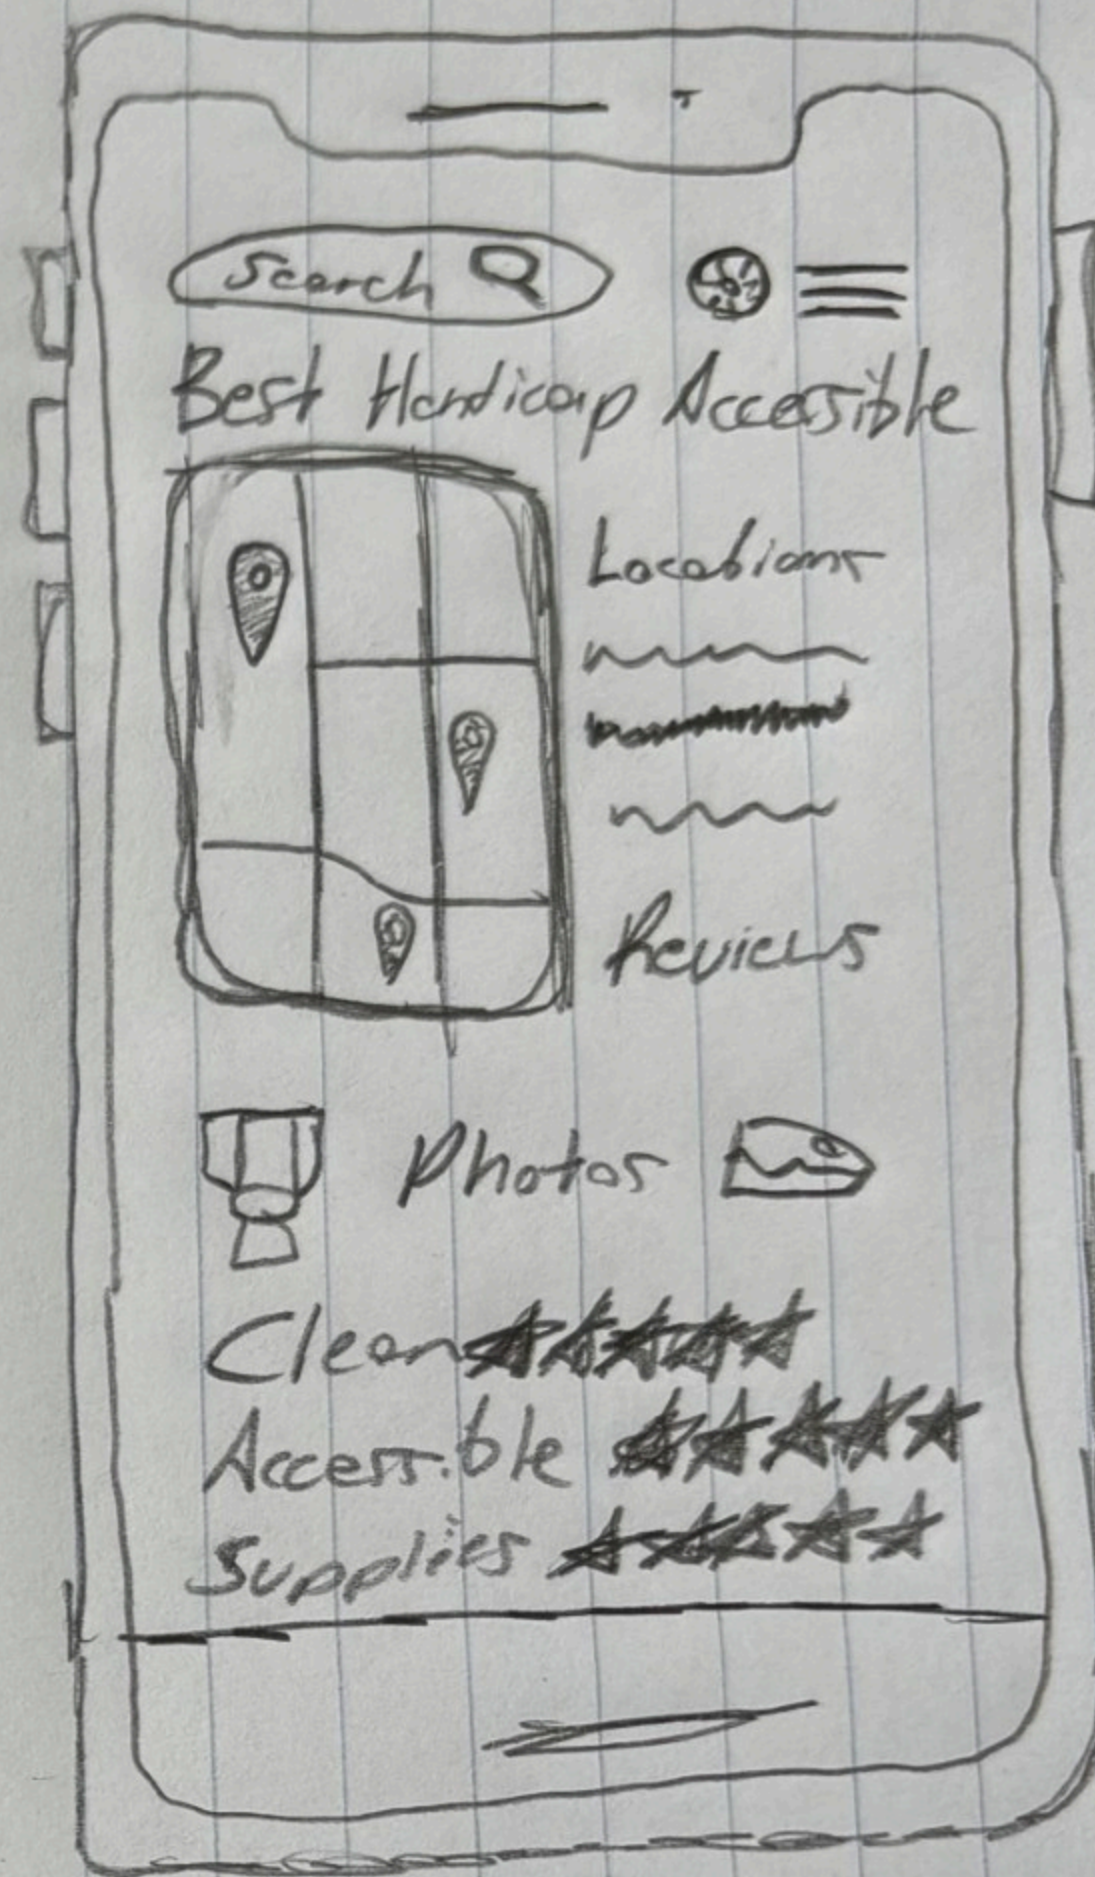 Search
Best Handicap Accessible
Locations
Reviews
Photos
Clean
Accessible
Supplies